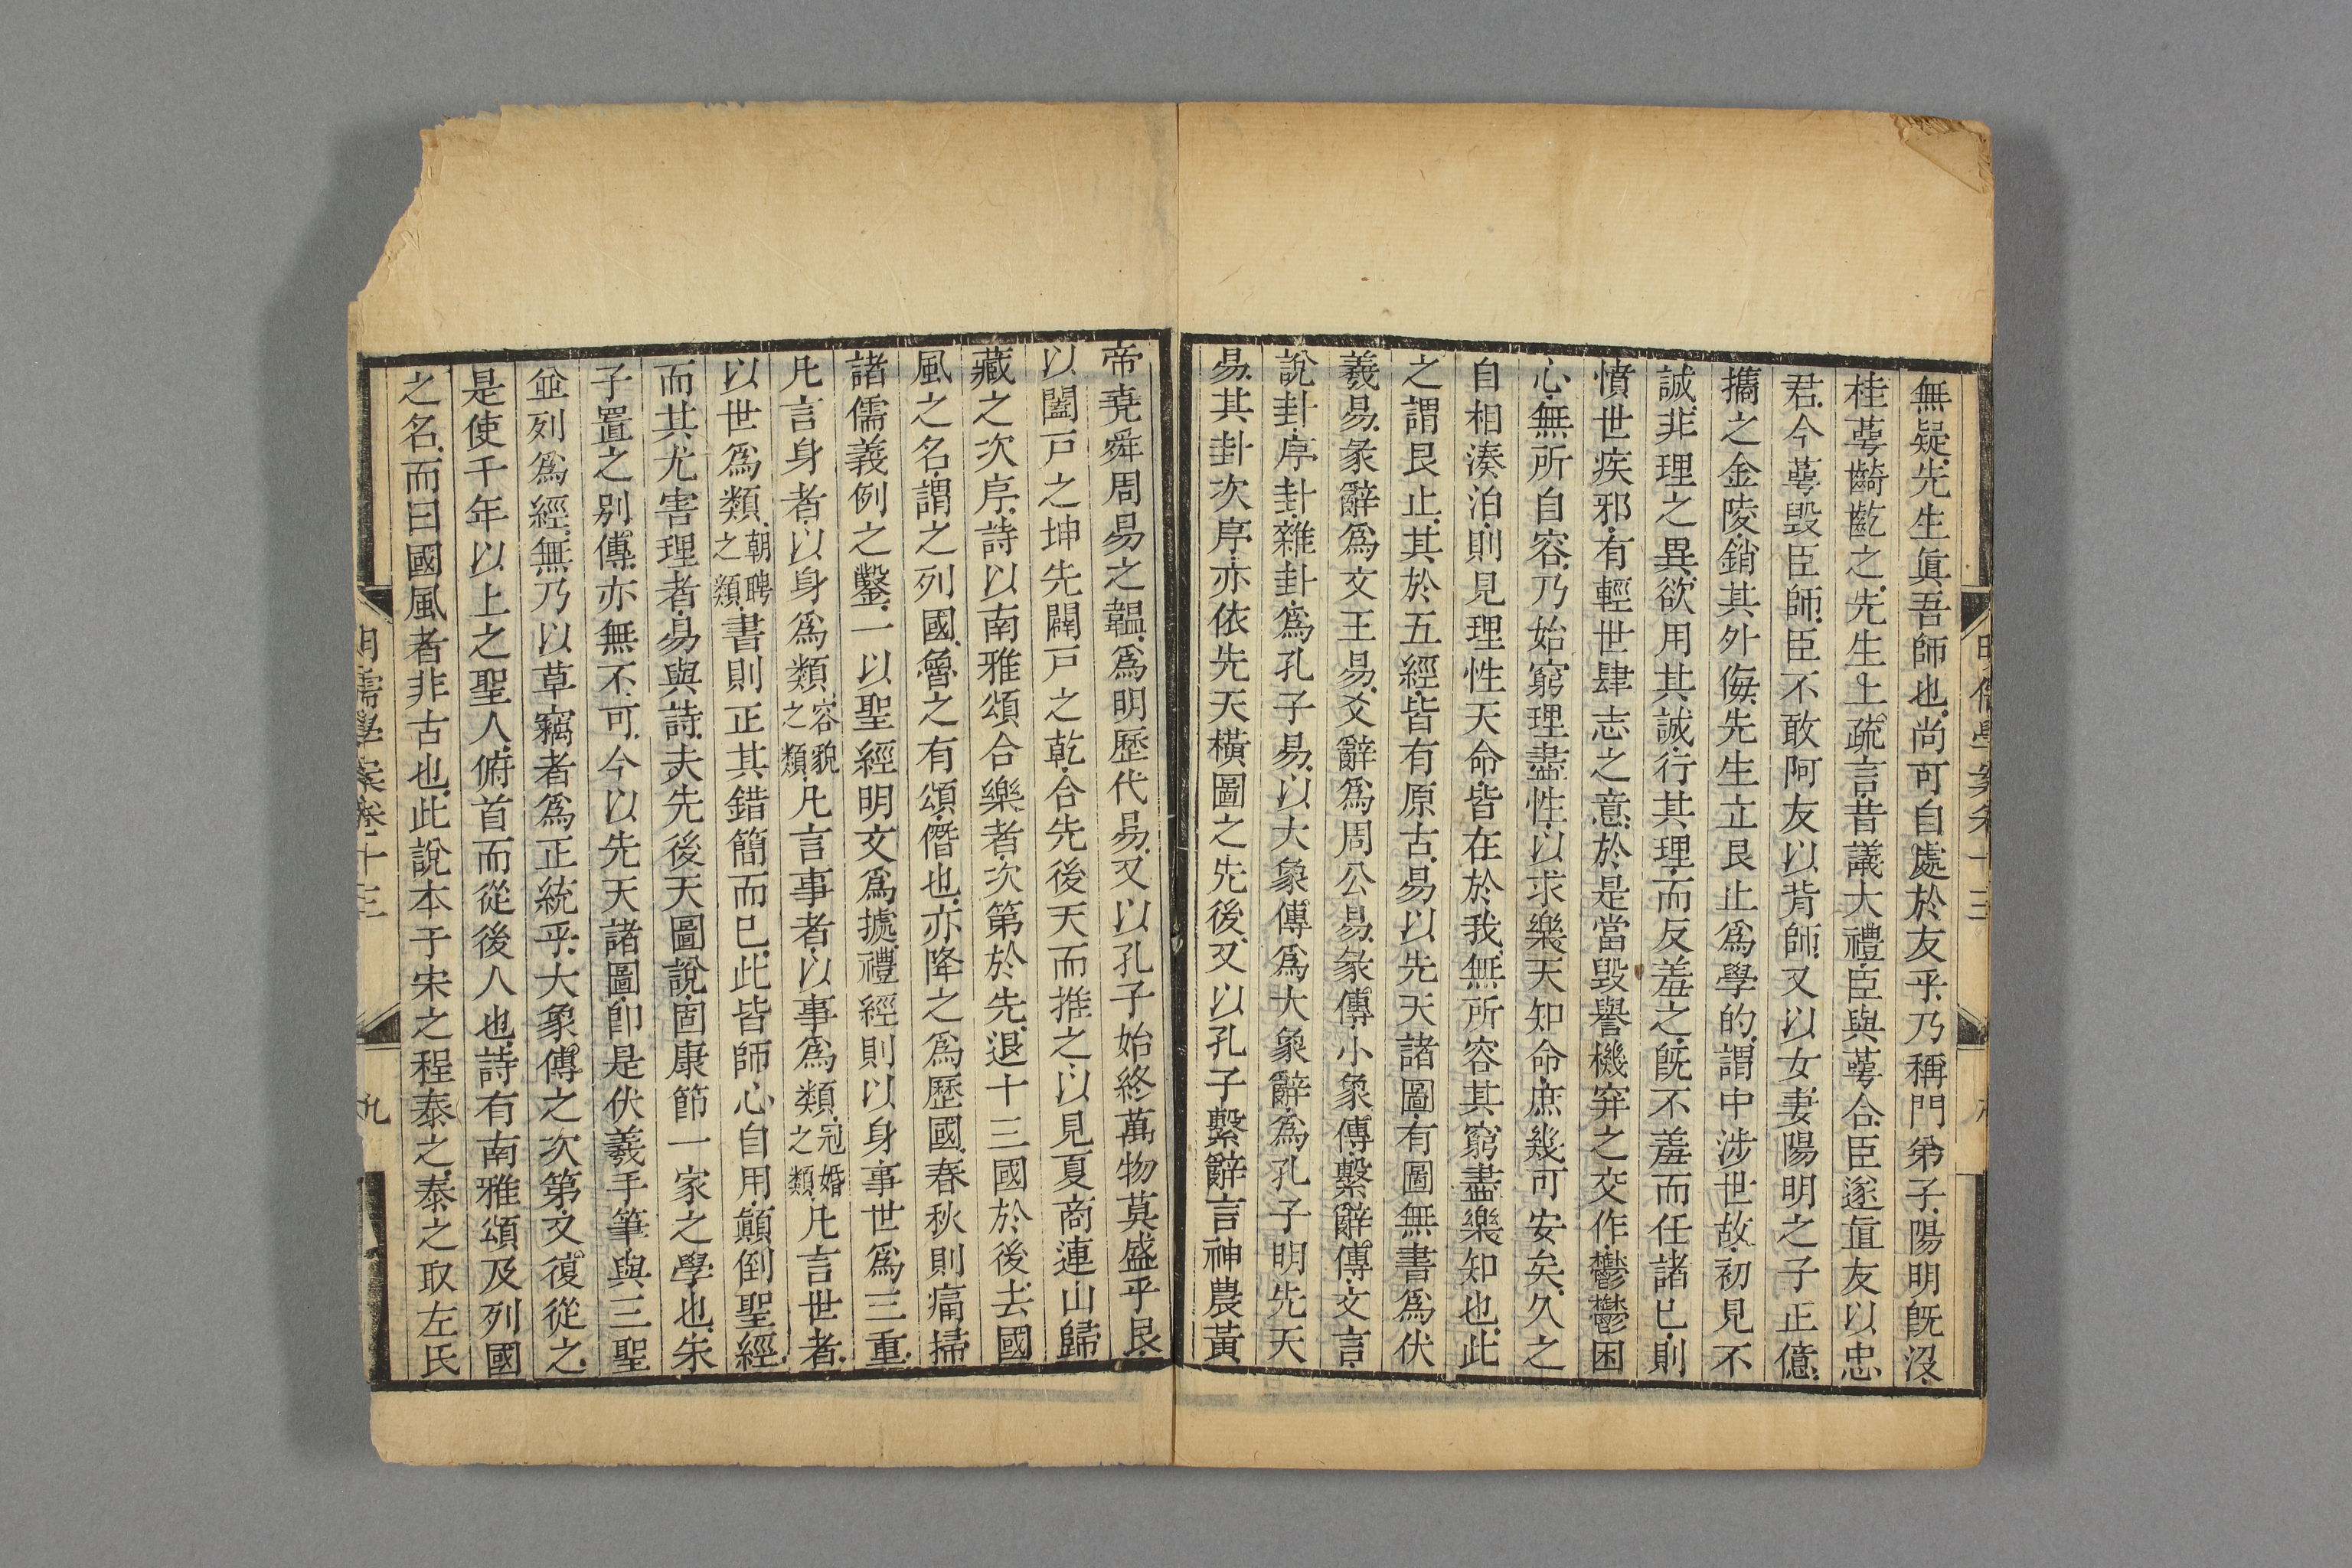 無疑先生眞吾師也尚可自處於友乎乃稱門弟子陽明旣沒
桂蕚齮齕之先生上疏言昔議大禮臣與蕚合臣遂直友以忠
君今蕚毀臣師臣不敢阿友以背師又以女妻陽明之子正億
攜之金陵銷其外侮先生立艮止爲學的謂中涉世故初見不
誠非理之異欲用其誠行其理而反羞之旣不羞而任諸已則
憤世疾邪有輕世肆志之意於是當毀譽機穽之交作鬱鬱困
心無所自容乃始窮理盡性以求樂天知命庶幾可安矣久之
自相湊泊則見理性天命皆在於我無所容其窮盡樂知也此
之謂艮止其於五經皆有原古易以先天諸圖有圖無書爲伏
羲易彖辭爲文王易爻辭爲周公易彖傳小象傳繫辭傳文言
說卦序卦雜卦爲孔子易以大象傳爲大象辭爲孔子明先天
易其卦次序亦依先天橫圖之先後又以孔子繫辭言神農黃
帝堯舜周易之韞爲明歷代易又以孔子始終萬物莫盛乎艮
以闔戸之坤先闢戸之乾合先後天而推之以見夏商連山歸
藏之次序詩以南雅頌合樂者次第於先退十三國於後去國
風之名謂之列國魯之有頌僭也亦降之爲歷國春秋則痛掃
諸儒義例之鑿一以聖經明文爲據禮經則以身事世爲三重
凡言身者以身爲類容貌之類凡言事者以事爲類冠婚之類凡言世者
以世爲類朝聘之類書則正其錯簡而已此皆師心自用顛倒聖經
而其尤害理者易與詩夫先後天圖說固康節一家之學也朱
子置之別傳亦無不可今以先天諸圖卽是伏羲手筆與三聖
並列爲經無乃以草竊者爲正統乎大象傳之次第又復從之
是使千年以上之聖人俯首而從後人也詩有南雅頌及列國
之名而曰國風者非古也此說本于宋之程泰之泰之取左氏
明儒學案卷十三
九